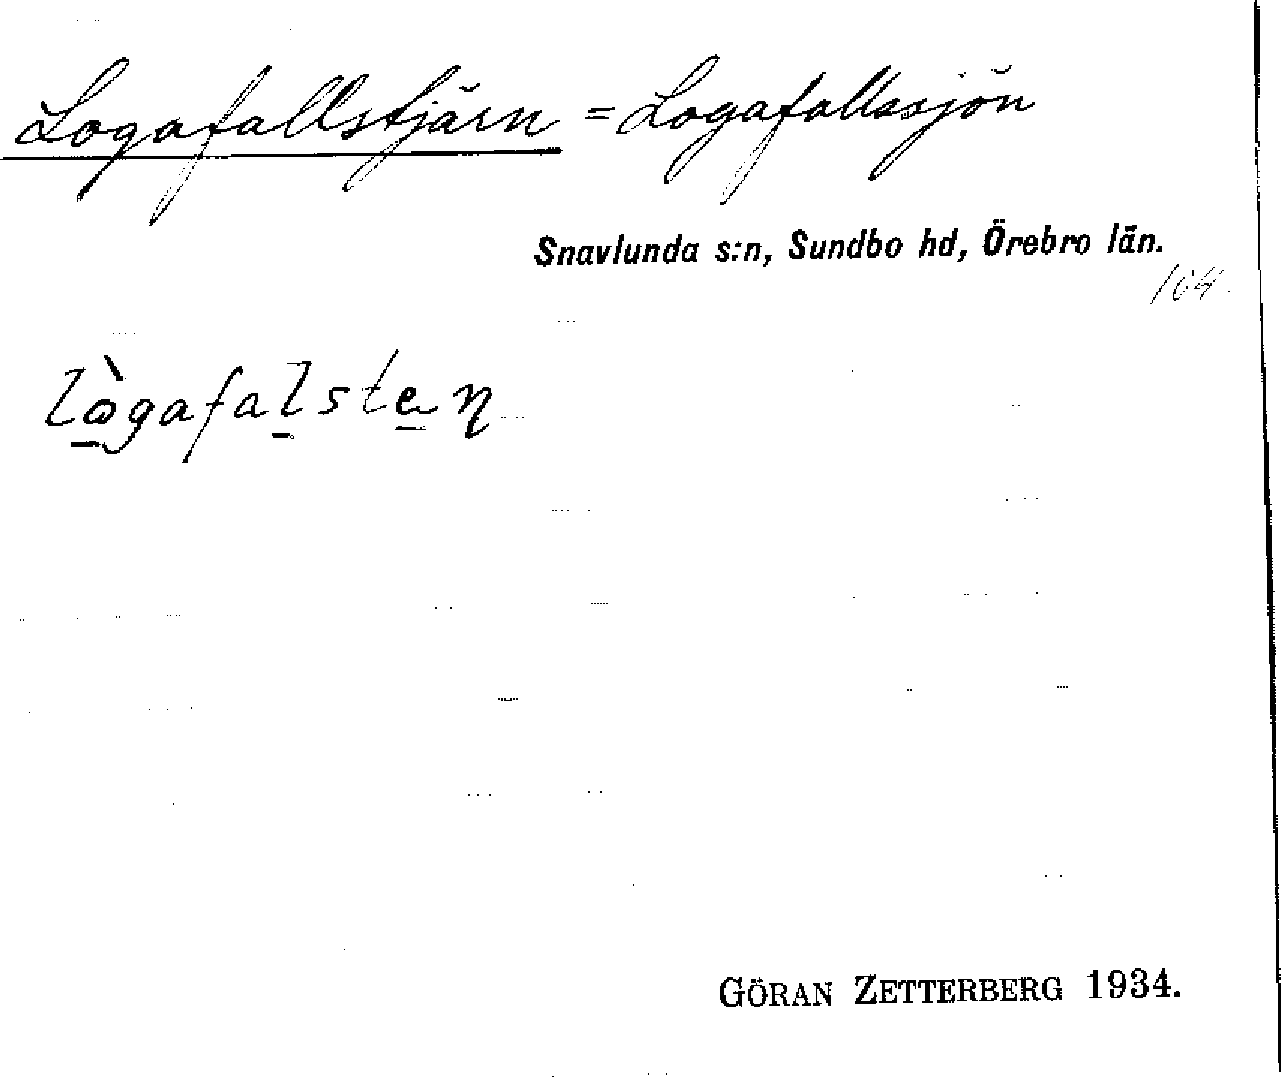 Logafallstjärn = Logafallssjön
Snavlunda s:n, Sundbo hd, Örebro län.
104.
lògafalstεꞃ
GÖRAN ZETTERBERG 1934.